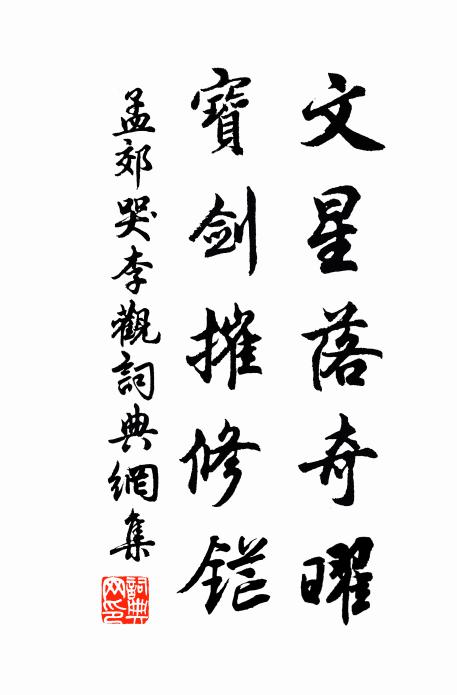 文星落奇曜
寶剑摧修鋩
孟郊哭李觀詞典網集
詞典网印